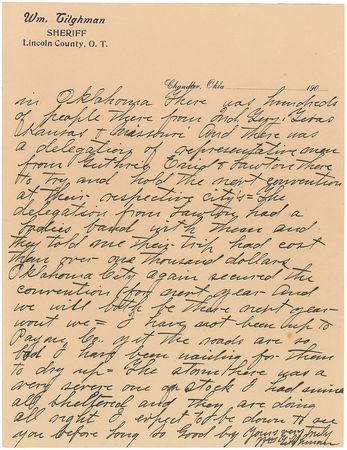 Wm. Tilghman
SHERIFF
Lincoln County, O. T.
Chandler, Okla. 190
in Oklahoma there was hundreds
of people there from Ind. Ter. Texas
Kansas & Missouri And there was
a delegation of representative men
from Guthrie Enid & Lawton there
to try and hold the next convention
at their respective city's = the
delegation from Lawton had a
band with them and
they told me their trip had cost
them over one thousand dollars
Oklahoma City again secured the
convention for next year And
we will both be there next year
wont we = I have not been up to
Co. yet the roads are so
bad I have been waiting for them
to dry up = the storm there was a
very severe one on stock I had mine
all sheltered and they are doing
all right I expect to be down to see
you before long so Good by Yours very truly
Wm Tilghman